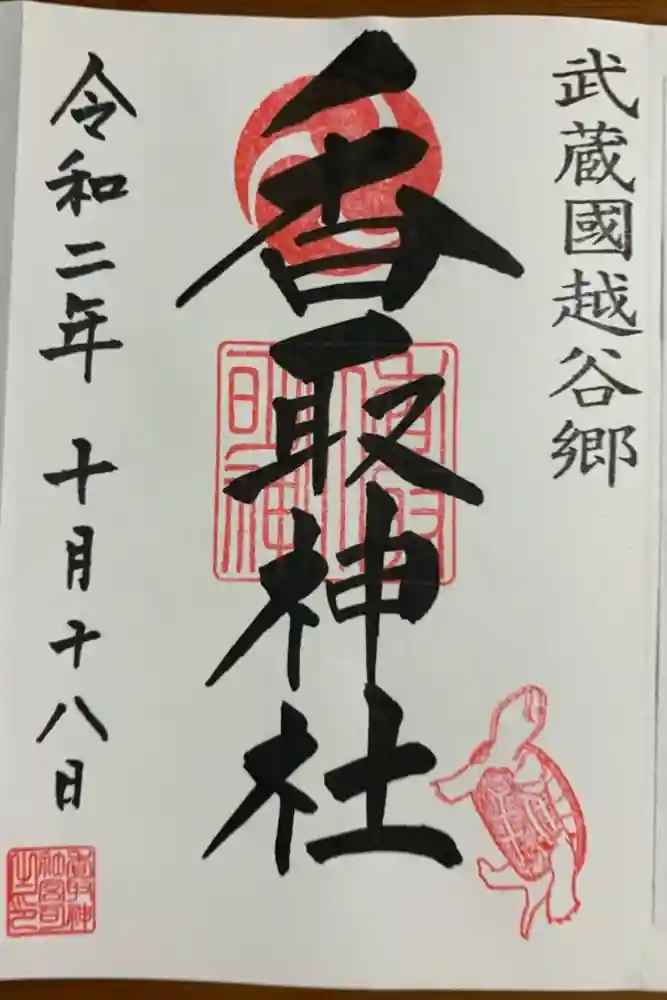 武蔵國越谷郷
香取神社
令和二年 十月十八日